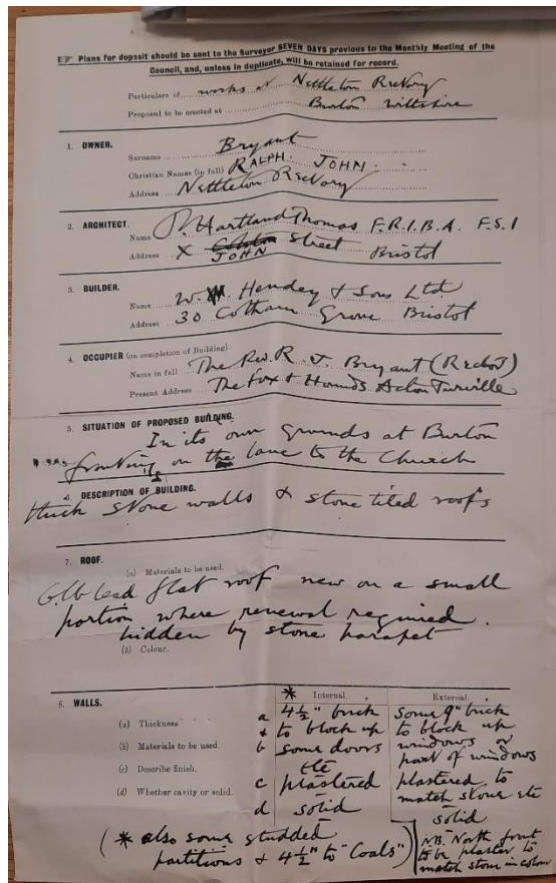 ☞ Plans for deposit should be sent to the Surveyor SEVEN DAYS previous to the Monthly Meeting of the
Council, and, unless in duplicate, will be retained for record.
Particulars of works at Nettleton Rectory
Proposed to be erected at Burton Wiltshire
1. OWNER.
Surname Bryant
Christian Names (in full) RALPH JOHN
Address Nettleton Rectory
2. ARCHITECT.
Name P. Hartland Thomas F.R.I.B.A. F.S.I
Address X JOHN Street Bristol
3. BUILDER.
Name W. Hendey & Sons Ltd.
Address 30 Cotham Grove Bristol
4. OCCUPIER (on completion of Building).
Name in full The Rev. R. J. Bryant (Rector)
Present Address The Fox & Hounds Acton Turville
5. SITUATION OF PROPOSED BUILDING.
In its own grounds at Burton
fronting on the lane to the Church
6. DESCRIPTION OF BUILDING.
thick stone walls & stone tiled roofs
7. ROOF.
(a) Materials to be used.
6 lb lead flat roof new on a small
portion where renewal required.
hidden by stone parapet
(b) Colour.
8. WALLS.
(a) Thickness
(b) Materials to be used.
(c) Describe finish.
(d) Whether cavity or solid.
* Internal.
a 4½" brick
& to block up
b some doors
etc
c plastered
d solid
External.
Some 9" brick
to block up
windows or
part of windows
plastered to
match stone etc
solid
N.B. North front
to be plaster to
match stone in colour
(* also some studded
partitions & 4½" to "Coals")